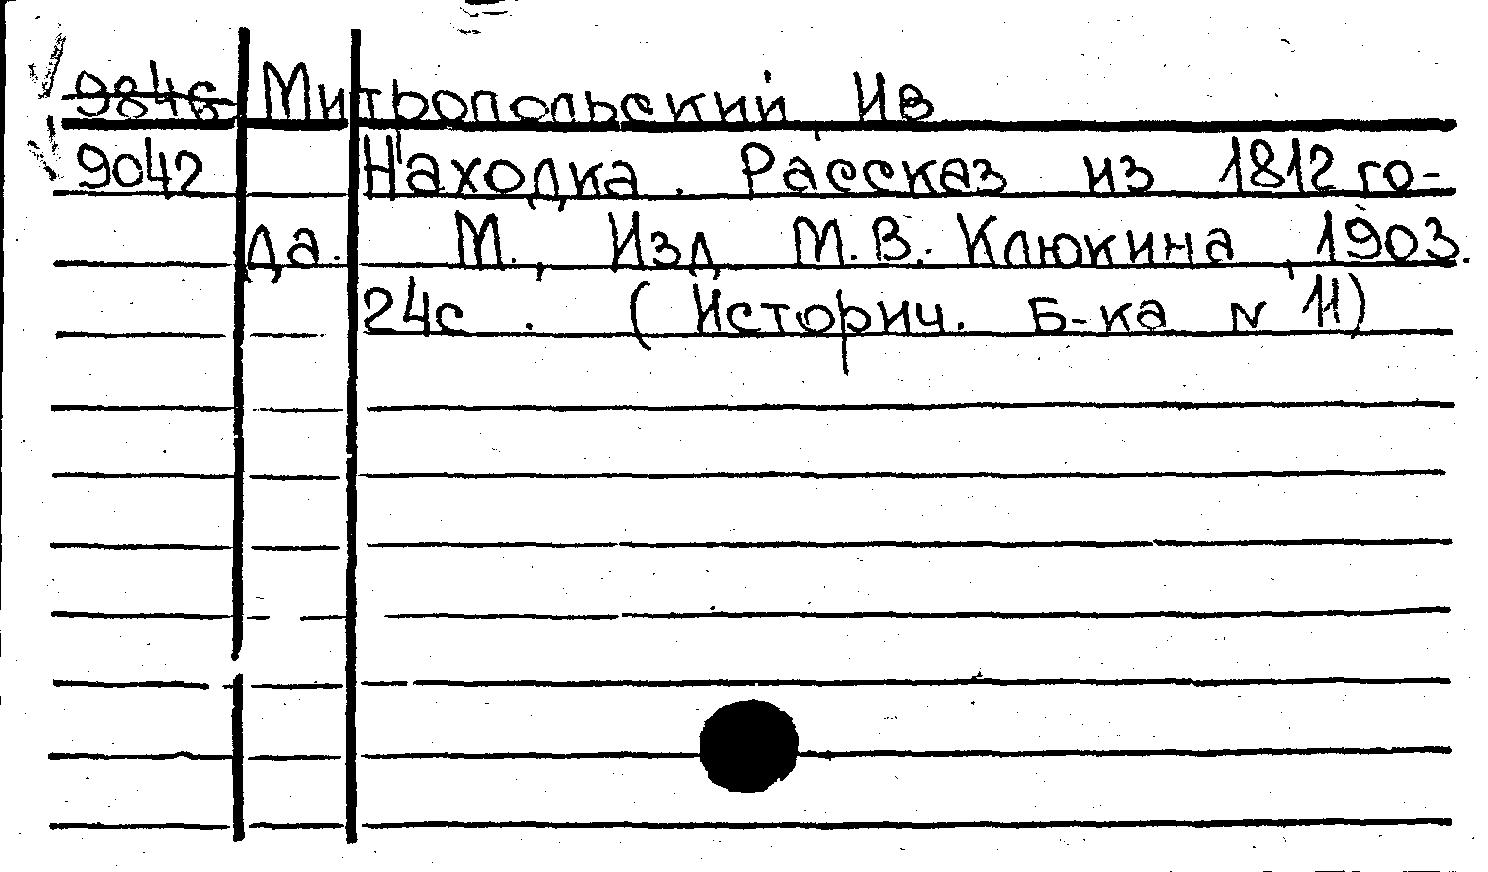 9846 Митропольский, Ив
9042 Находка. Рассказ из 1812 го-
да. М., Изд М.В. Клюкина, 1903.
24с. (Историч. Б-ка N 11)